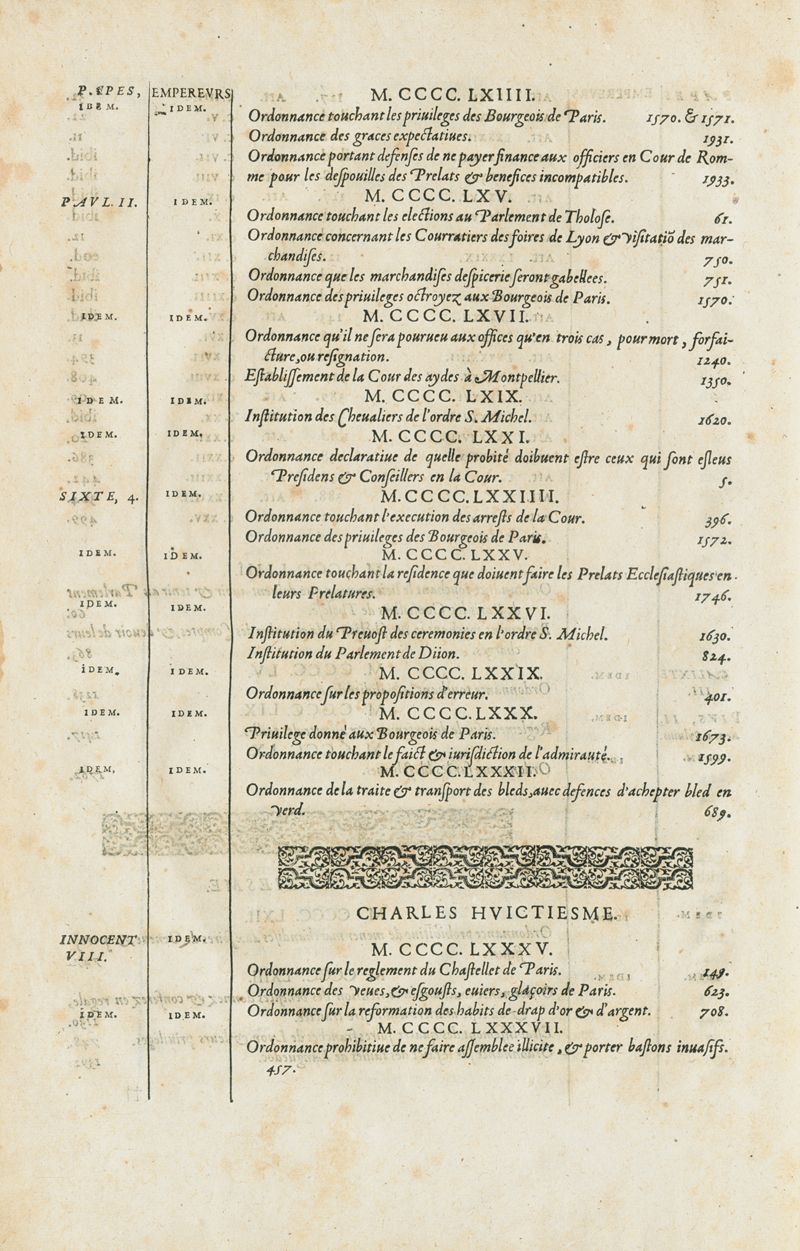 PAPES, EMPEREVRS M. CCCC. LXIIII.
IDEM. IDEM. Ordonnance touchant les priuileges des Bourgeois de Paris. 1570. & 1571.
Ordonnance des graces expectatiues. 1931.
Ordonnance portant defenſes de ne payer finance aux officiers en Cour de Rom-
me pour les deſpouilles des Prelats & benefices incompatibles. 1933.
PAVL. II. IDEM. M. CCCC. LXV.
Ordonnance touchant les elections au Parlement de Tholoſe. 61.
Ordonnance concernant les Courratiers des foires de Lyon & viſitatiō des mar-
chandiſes. 750.
Ordonnance que les marchandiſes deſpicerie ſeront gabellees. 751.
Ordonnance des priuileges octroyez aux Bourgeois de Paris. 1570.
IDEM. IDEM. M. CCCC. LXVII.
Ordonnance qu'il ne ſera pourueu aux offices qu'en trois cas, pour mort, forfai-
cture, ou reſignation. 1240.
Eſtabliſſement de la Cour des aydes à Montpellier. 1350.
IDEM. IDEM. M. CCCC. LXIX.
Inſtitution des Cheualiers de l'ordre S. Michel. 1620.
IDEM. IDEM. M. CCCC. LXXI.
Ordonnance declaratiue de quelle probité doibuent eſtre ceux qui ſont eſleus
Preſidens & Conſeillers en la Cour. 5.
SIXTE, 4. IDEM. M. CCCC. LXXIIII.
Ordonnance touchant l'execution des arreſts de la Cour. 396.
Ordonnance des priuileges des Bourgeois de Paris. 1572.
IDEM. IDEM. M. CCCC. LXXV.
Ordonnance touchant la reſidence que doiuent faire les Prelats Eccleſiaſtiques en
leurs Prelatures. 1746.
IDEM. IDEM. M. CCCC. LXXVI.
Inſtitution du Preuoſt des ceremonies en l'ordre S. Michel. 1630.
Inſtitution du Parlement de Diion. 824.
IDEM. IDEM. M. CCCC. LXXIX.
Ordonnance ſur les propoſitions d'erreur. 401.
IDEM. IDEM. M. CCCC. LXXX.
Priuilege donné aux Bourgeois de Paris. 1673.
Ordonnance touchant le faict & iuriſdiction de l'admirauté. 1599.
IDEM. IDEM. M. CCCC. LXXXII.
Ordonnance de la traite & tranſport des bleds, auec defences d'achepter bled en
verd. 689.
CHARLES HVICTIESME.
INNOCENT VIII. IDEM. M. CCCC. LXXXV.
Ordonnance ſur le reglement du Chaſtellet de Paris. 149.
Ordonnance des veues, & eſgouſts, euiers, glaçoirs de Paris. 623.
Ordonnance ſur la reformation des habits de drap d'or & d'argent. 708.
IDEM. IDEM. M. CCCC. LXXXVII.
Ordonnance prohibitiue de ne faire aſſemblee illicite, & porter baſtons inuaſifs.
457.